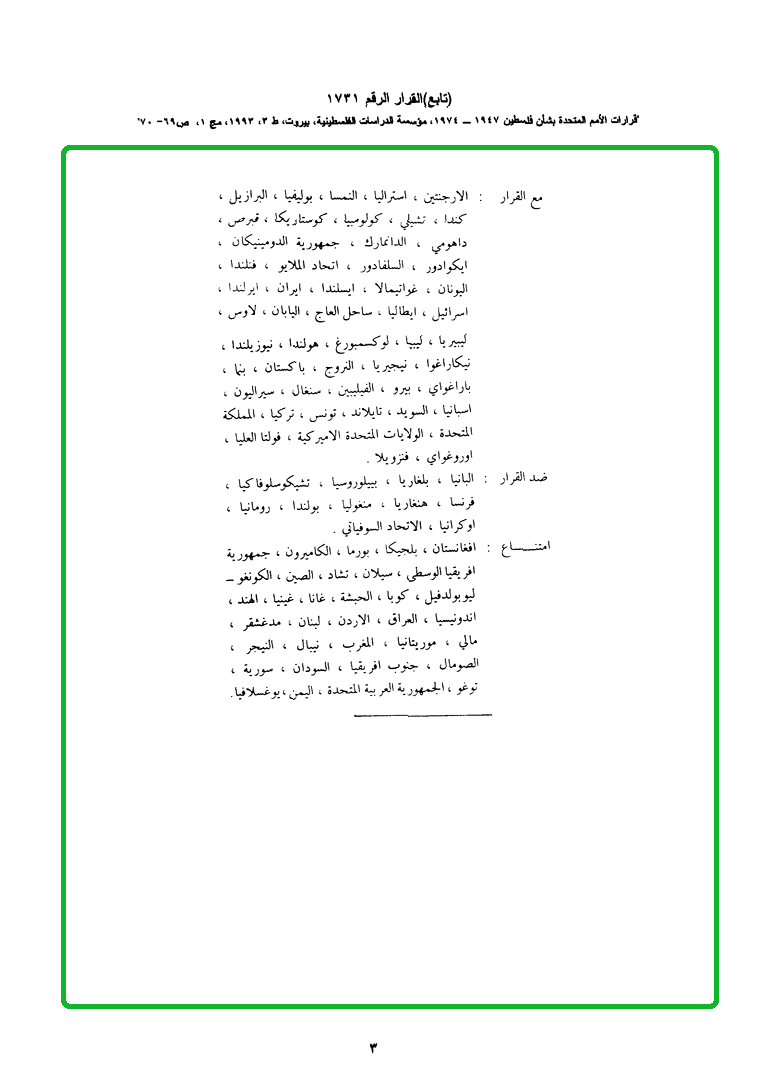 (تابع)القرار الرقم ١٧٣١
"قرارات الأمم المتحدة بشأن فلسطين ١٩٤٧ ــ ١٩٧٤، مؤسسة الدراسات الفلسطينية، بيروت، ط ٣، ١٩٩٣، مج ١، ص٦٩- ٧٠"
مع القرار : الارجنتين ، استراليا ، النمسا ، بوليفيا ، البرازيل ،
كندا ، تشيلي ، كولومبيا ، كوستاريكا ، قبرص ،
داهومي ، الدانمارك ، جمهورية الدومينيكان ،
ايكوادور ، السلفادور ، اتحاد الملايو ، فنلندا ،
اليونان ، غواتيمالا ، ايسلندا ، ايران ، ايرلندا ،
اسرائيل ، ايطاليا ، ساحل العاج ، اليابان ، لاوس ،
ليبيريا ، ليبيا ، لوكسمبورغ ، هولندا ، نيوزيلندا ،
نيكاراغوا ، نيجيريا ، النروج ، باكستان ، بنما ،
باراغواي ، بيرو ، الفيليبين ، سنغال ، سيراليون ،
اسبانيا ، السويد ، تايلاند ، تونس ، تركيا ، المملكة
المتحدة ، الولايات المتحدة الاميركية ، فولتا العليا ،
اوروغواي ، فنزويلا .
ضد القرار : البانيا ، بلغاريا ، بييلوروسيا ، تشيكوسلوفاكيا ،
فرنسا ، هنغاريا ، منغوليا ، بولندا ، رومانيا ،
اوكرانيا ، الاتحاد السوفياتي .
امتنـــــاع : افغانستان ، بلجيكا ، بورما ، الكاميرون ، جمهورية
افريقيا الوسطى ، سيلان ، تشاد ، الصين ، الكونغو ــ
ليوبولدفيل ، كوبا ، الحبشة ، غانا ، غينيا ، الهند ،
اندونيسيا ، العراق ، الاردن ، لبنان ، مدغشقر ،
مالي ، موريتانيا ، المغرب ، نيبال ، النيجر ،
الصومال ، جنوب افريقيا ، السودان ، سورية ،
توغو ، الجمهورية العربية المتحدة ، اليمن ، يوغسلافيا.
٣